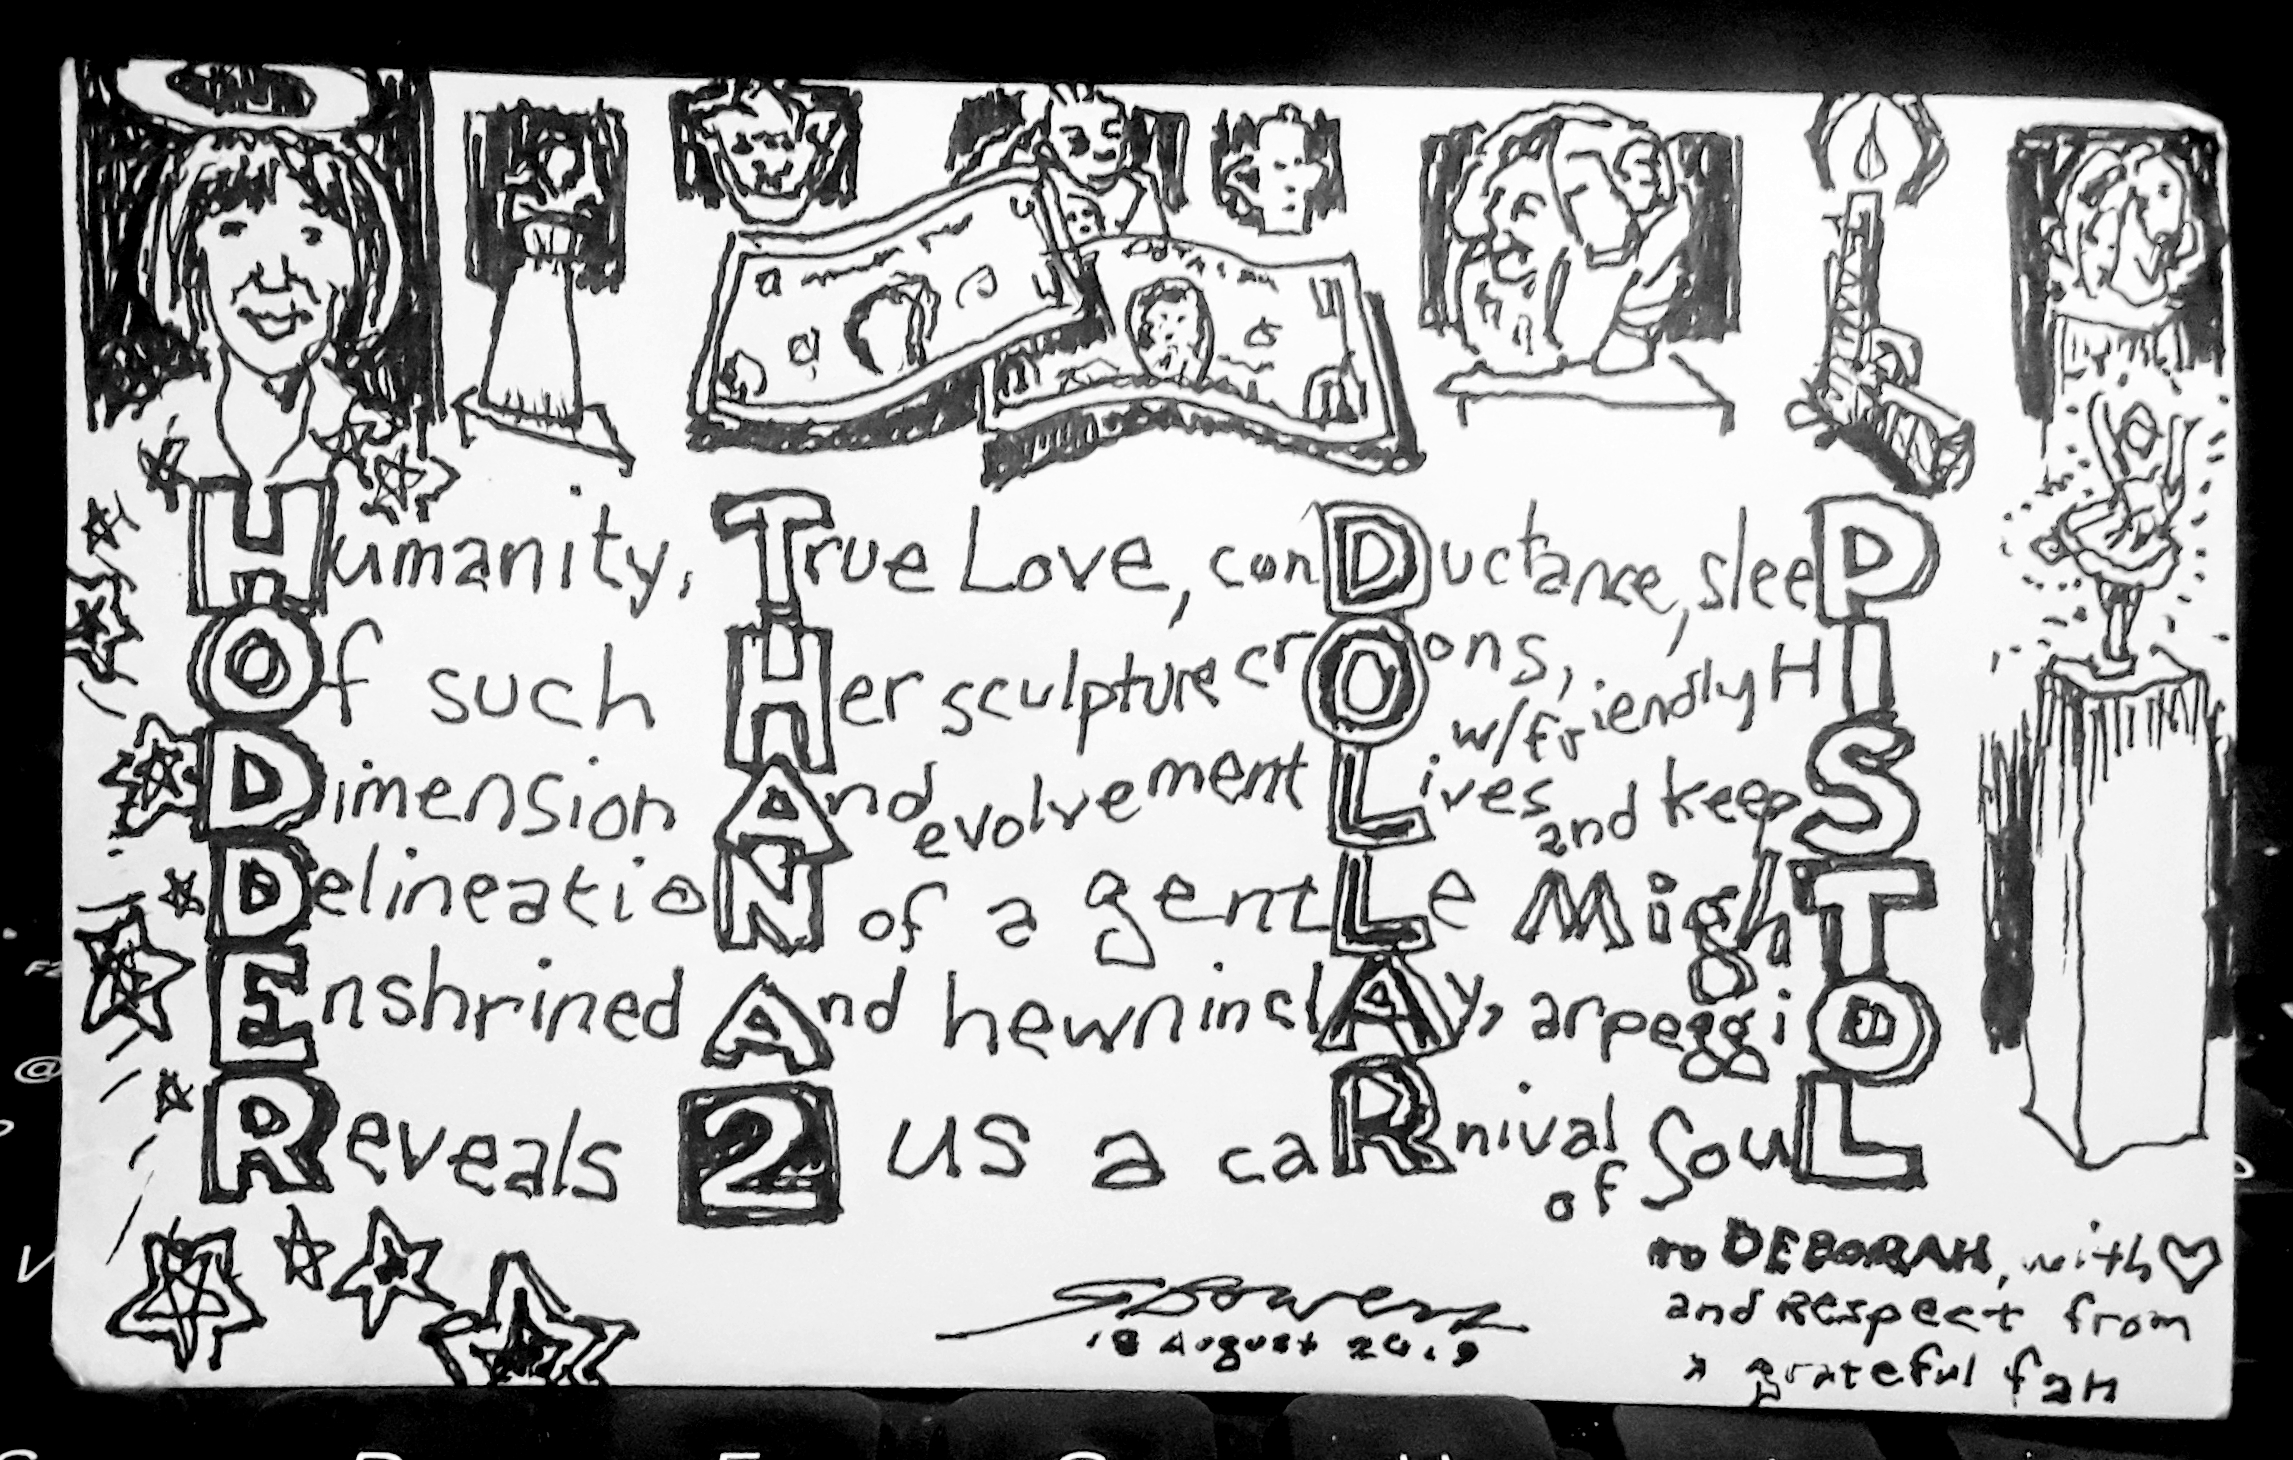 Humanity, True Love, conDuctance, sleeP
Of such Her sculpture crOons, w/friendly HI
Dimension And evolvement Lives and keepS
DelineatioN of a gentLe MighT
Enshrined And hewn in clAy, arpeggiO
Reveals 2 us a caRnival of SouL
to DEBORAH, with
and Respect from
a grateful fan
SBowers
18 August 2019
F2
@
V